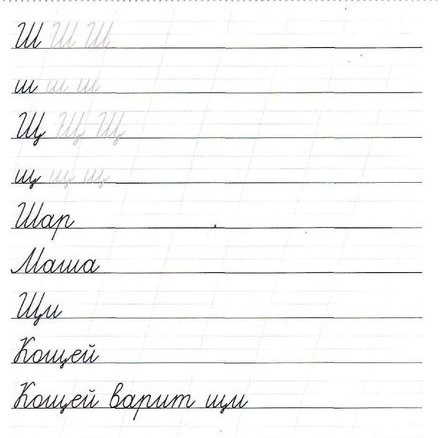 Ш Ш Ш
ш ш ш
Щ Щ Щ
щ щ щ
Шар
Маша
Щи
Кощей
Кощей варит щи